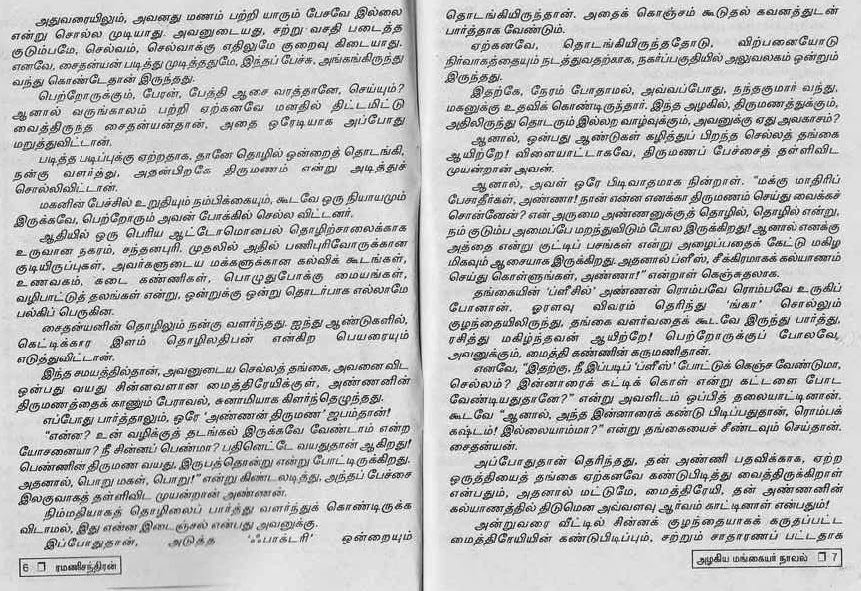 அதுவரையிலும், அவனது மணம் பற்றி யாரும் பேசவே இல்லை
என்று சொல்ல முடியாது. அவனுடையது, சற்று வசதி படைத்த
குடும்பமே, செல்வம், செல்வாக்கு எதிலுமே குறைவு கிடையாது.
எனவே, சைதன்யன் படித்து முடித்ததுமே, இந்தப் பேச்சு, அங்கங்கிருந்து
வந்து கொண்டேதான் இருந்தது.
பெற்றோருக்கும், பேரன், பேத்தி ஆசை வராதானே, செய்யும்?
ஆனால் வருங்காலம் பற்றி ஏற்கனவே மனதில் திட்டமிட்டு
வைத்திருந்த சைதன்யன்தான், அதை ஒரேடியாக அப்போது
மறுத்துவிட்டான்.
படித்த படிப்புக்கு ஏற்றதாக, தானே தொழில் ஒன்றைத் தொடங்கி,
நன்கு வளர்த்து, அதன்பிறகே திருமணம் என்று அடித்துச்
சொல்லிவிட்டான்.
மகனின் பேச்சில் உறுதியும் நம்பிக்கையும், கூடவே ஒரு நியாயமும்
இருக்கவே, பெற்றோரும் அவன் போக்கில் செல்ல விட்டனர்.
ஆதியில் ஒரு பெரிய ஆட்டோமொபைல் தொழிற்சாலைக்காக
உருவான நகரம், சந்தனபுரி. முதலில் அதில் பணிபுரிவோருக்கான
குடியிருப்புகள், அவர்களுடைய மக்களுக்கான கல்விக் கூடங்கள்,
உணவகம், கடை கண்ணிகள், பொழுதுபோக்கு மையங்கள்,
வழிபாட்டுத் தலங்கள் என்று, ஒன்றுக்கு ஒன்று தொடர்பாக எல்லாமே
பல்கிப் பெருகின.
சைதன்யனின் தொழிலும் நன்கு வளர்ந்தது. ஐந்து ஆண்டுகளில்,
கெட்டிக்கார இளம் தொழிலதிபன் என்கிற பெயரையும்
எடுத்துவிட்டான்.
இந்த சமயத்தில்தான், அவனுடைய செல்லத் தங்கை, அவனைவிட
ஒன்பது வயது சின்னவளான மைத்திரேயிக்குள், அண்ணனின்
திருமணத்தைக் காணும் பேராவல், சுனாமியாக கிளர்ந்தெழுந்தது.
எப்போது பார்த்தாலும், ஒரே 'அண்ணன் திருமண' ஜபம்தான்!
"என்ன? உன் வழிக்குத் தடங்கல் இருக்கவே வேண்டாம் என்ற
யோசனையா? நீ சின்னப் பெண்மா? பதினெட்டே வயதுதான் ஆகிறது!
பெண்ணின் திருமண வயது, இருபத்தொன்று என்று போட்டிருக்கிறது.
அதனால், பொறு மகள், பொறு!" என்று கிண்டலடித்து, அந்தப் பேச்சை
இலகுவாகத் தள்ளிவிட முயன்றான் அண்ணன்.
நிம்மதியாகத் தொழிலைப் பார்த்து வளர்த்துக் கொண்டிருக்க
விடாமல், இது என்ன இடைஞ்சல் என்பது அவனுக்கு.
இப்போதுதான், அடுத்த 'ஃபாக்டரி' ஒன்றையும்
6 ❐ ரமணிசந்திரன்
தொடங்கியிருந்தான். அதைக் கொஞ்சம் கூடுதல் கவனத்துடன்
பார்த்தாக வேண்டும்.
ஏற்கனவே, தொடங்கியிருந்ததோடு, விற்பனையோடு
நிர்வாகத்தையும் நடத்துவதற்காக, நகர்ப்பகுதியில் அலுவலகம் ஒன்றும்
இருந்தது.
இதற்கே, நேரம் போதாமல், அவ்வப்போது, நந்தகுமார் வந்து,
மகனுக்கு உதவிக் கொண்டிருந்தார். இந்த அழகில், திருமணத்துக்கும்,
அதிலிருந்து தொடரும் இல்லற வாழ்வுக்கும், அவனுக்கு ஏது அவகாசம்?
ஆனால், ஒன்பது ஆண்டுகள் கழித்துப் பிறந்த செல்லத் தங்கை
ஆயிற்றே! விளையாட்டாகவே, திருமணப் பேச்சைத் தள்ளிவிட
முயன்றான் அவன்.
ஆனால், அவள் ஒரே பிடிவாதமாக நின்றாள். "மக்கு மாதிரிப்
பேசாதீர்கள், அண்ணா! நான் என்ன எனக்கா திருமணம் செய்து வைக்கச்
சொன்னேன்? என் அருமை அண்ணனுக்குத் தொழில், தொழில் என்று,
நம் குடும்ப அமைப்பே மறந்துவிடும் போல இருக்கிறது! ஆனால் எனக்கு
அத்தை என்று குட்டிப் பசங்கள் என்று அழைப்பதைக் கேட்டு மகிழ
மிகவும் ஆசையாக இருக்கிறது. அதனால் ப்ளீஸ், சீக்கிரமாகக் கல்யாணம்
செய்து கொள்ளுங்கள், அண்ணா!" என்றாள் கெஞ்சுதலாக.
தங்கையின் 'ப்ளீசில்' அண்ணன் ரொம்பவே ரொம்பவே உருகிப்
போனான். ஓரளவு விவரம் தெரிந்து 'ங்கா' சொல்லும்
குழந்தையிலிருந்து, தங்கை வளர்வதைக் கூடவே இருந்து பார்த்து,
ரசித்து மகிழ்ந்தவன் ஆயிற்றே! பெற்றோருக்குப் போலவே,
அவனுக்கும், மைத்தி கண்ணின் கருமணிதான்.
எனவே, "இதற்கு, நீ இப்படிப் 'ப்ளீஸ்' போட்டுக் கெஞ்ச வேண்டுமா,
செல்லம்? இன்னாரைக் கட்டிக் கொள் என்று கட்டளை போட
வேண்டியதுதானே?" என்று அவளிடம் ஒப்பித் தலையாட்டினான்.
கூடவே "ஆனால், அந்த இன்னாரைக் கண்டு பிடிப்பதுதான், ரொம்பக்
கஷ்டம்! இல்லையாம்மா?" என்று தங்கையைச் சீண்டவும் செய்தான்.
சைதன்யன்.
அப்போதுதான் தெரிந்தது, தன் அண்ணி பதவிக்காக, ஏற்ற
ஒருத்தியைத் தங்கை ஏற்கனவே கண்டுபிடித்து வைத்திருக்கிறாள்
என்பதும், அதனால் மட்டுமே, மைத்திரேயி, தன் அண்ணனின்
கல்யாணத்தில் திடுமென அவ்வளவு ஆர்வம் காட்டினாள் என்பதும்!
அன்றுவரை வீட்டில் சின்னக் குழந்தையாகக் கருதப்பட்ட
மைத்திரேயியின் கண்டுபிடிப்பும், சற்றும் சாதாரணப் பட்டதாக
அழகிய மங்கையர் நாவல் ❐ 7